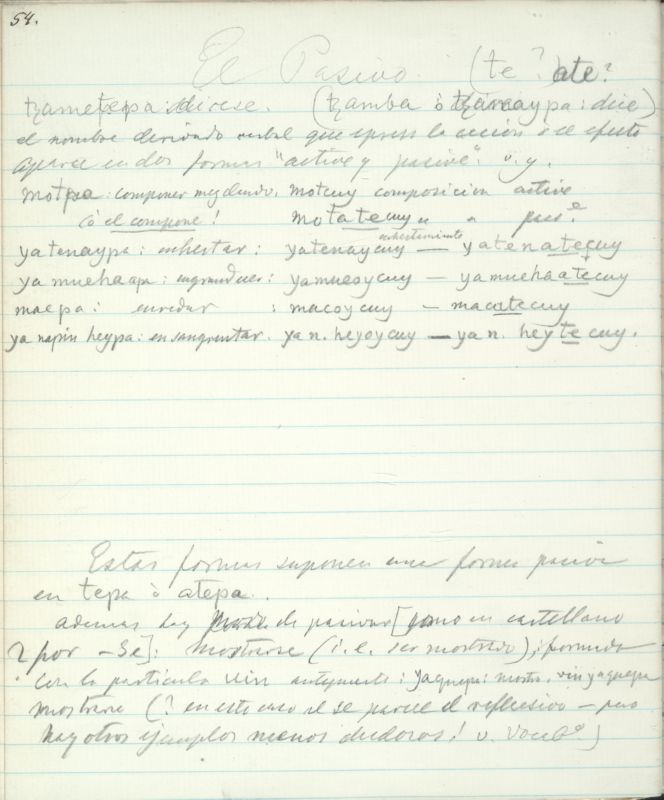 54.
El Pasivo. (te? ate?
tzametepa: dicese. (tzamba ò tzamaypa: dice)
el nombre derivado verbal que expresa la acción ò el efecto
aparece en dos formas "active y pasive": v. g.
motpa: componer mezclando. motcuy composicion active
(ò el compone! motatecuy " " pas.e
yatenaypa: enhestar: yatenaycuy enhestamiento — yatenatecuy
yamuehaapa: engrandecer: yamueoycuy — yamuehaatecuy
macpa: enredar : macoycuy — macatecuy
ya napin heypa: ensangrentar. ya n. heyoycuy — ya n. heytecuy.
Estas formas suponen una forma pasiva
en tepa ò atepa.
ademas hay modo de pasivar [como en castellano
? por -Se]: mostrarse (i.e. ser mostrado); formado
con la particula vin antepuesta: yaquepa: mostra. vin yaquepa
mostrarse (? en este caso el se parece el reflexivo — pero
hay otros ejemplos menos dudosos! v. Vocabo)